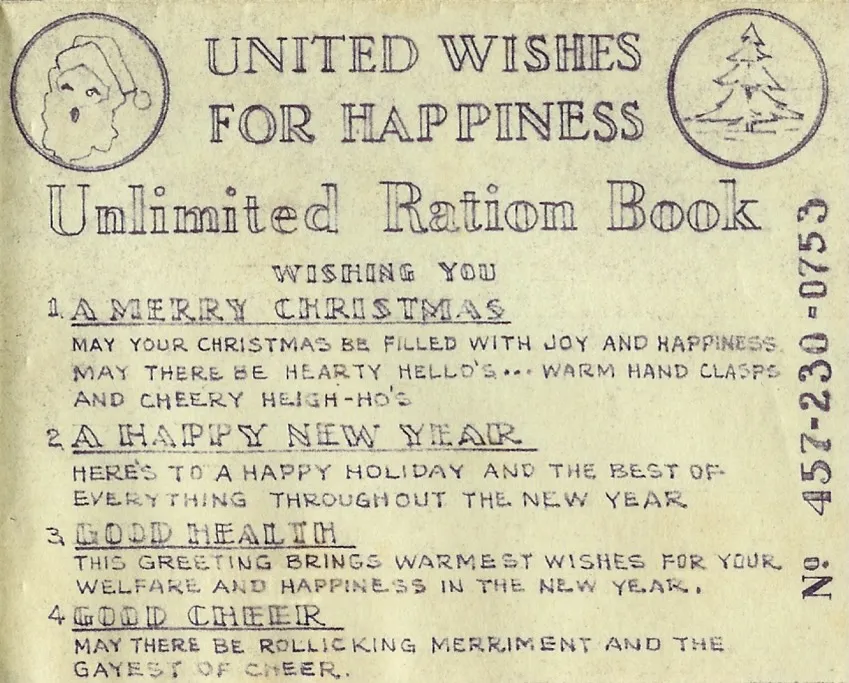 UNITED WISHES
FOR HAPPINESS
Unlimited Ration Book
WISHING YOU
1. A MERRY CHRISTMAS
MAY YOUR CHRISTMAS BE FILLED WITH JOY AND HAPPINESS.
MAY THERE BE HEARTY HELLO'S... WARM HAND CLASPS
AND CHEERY HEIGH-HO'S
2. A HAPPY NEW YEAR
HERE'S TO A HAPPY HOLIDAY AND THE BEST OF
EVERYTHING THROUGHOUT THE NEW YEAR
3. GOOD HEALTH
THIS GREETING BRINGS WARMEST WISHES FOR YOUR
WELFARE AND HAPPINESS IN THE NEW YEAR.
4 GOOD CHEER
MAY THERE BE ROLLICKING MERRIMENT AND THE
GAYEST OF CHEER.
No. 457-230-0753